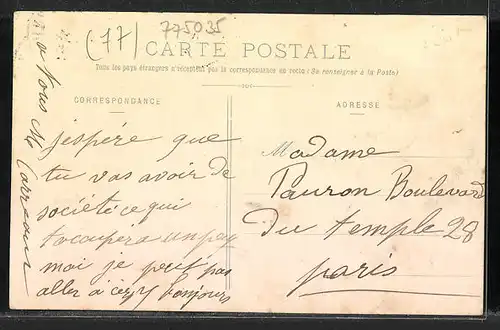 (17)
775035
CARTE POSTALE
Tous les pays étrangers n'acceptent pas la correspondance au recto (Se renseigner à la Poste)
CORRESPONDANCE
ADRESSE
j'espère que
tu vas avoir de
société ce qui
tocoupéra un peu
moi je peut pas
aller à bonjours
a tous
Madame
Pauron Boulevard
du temple 28
paris